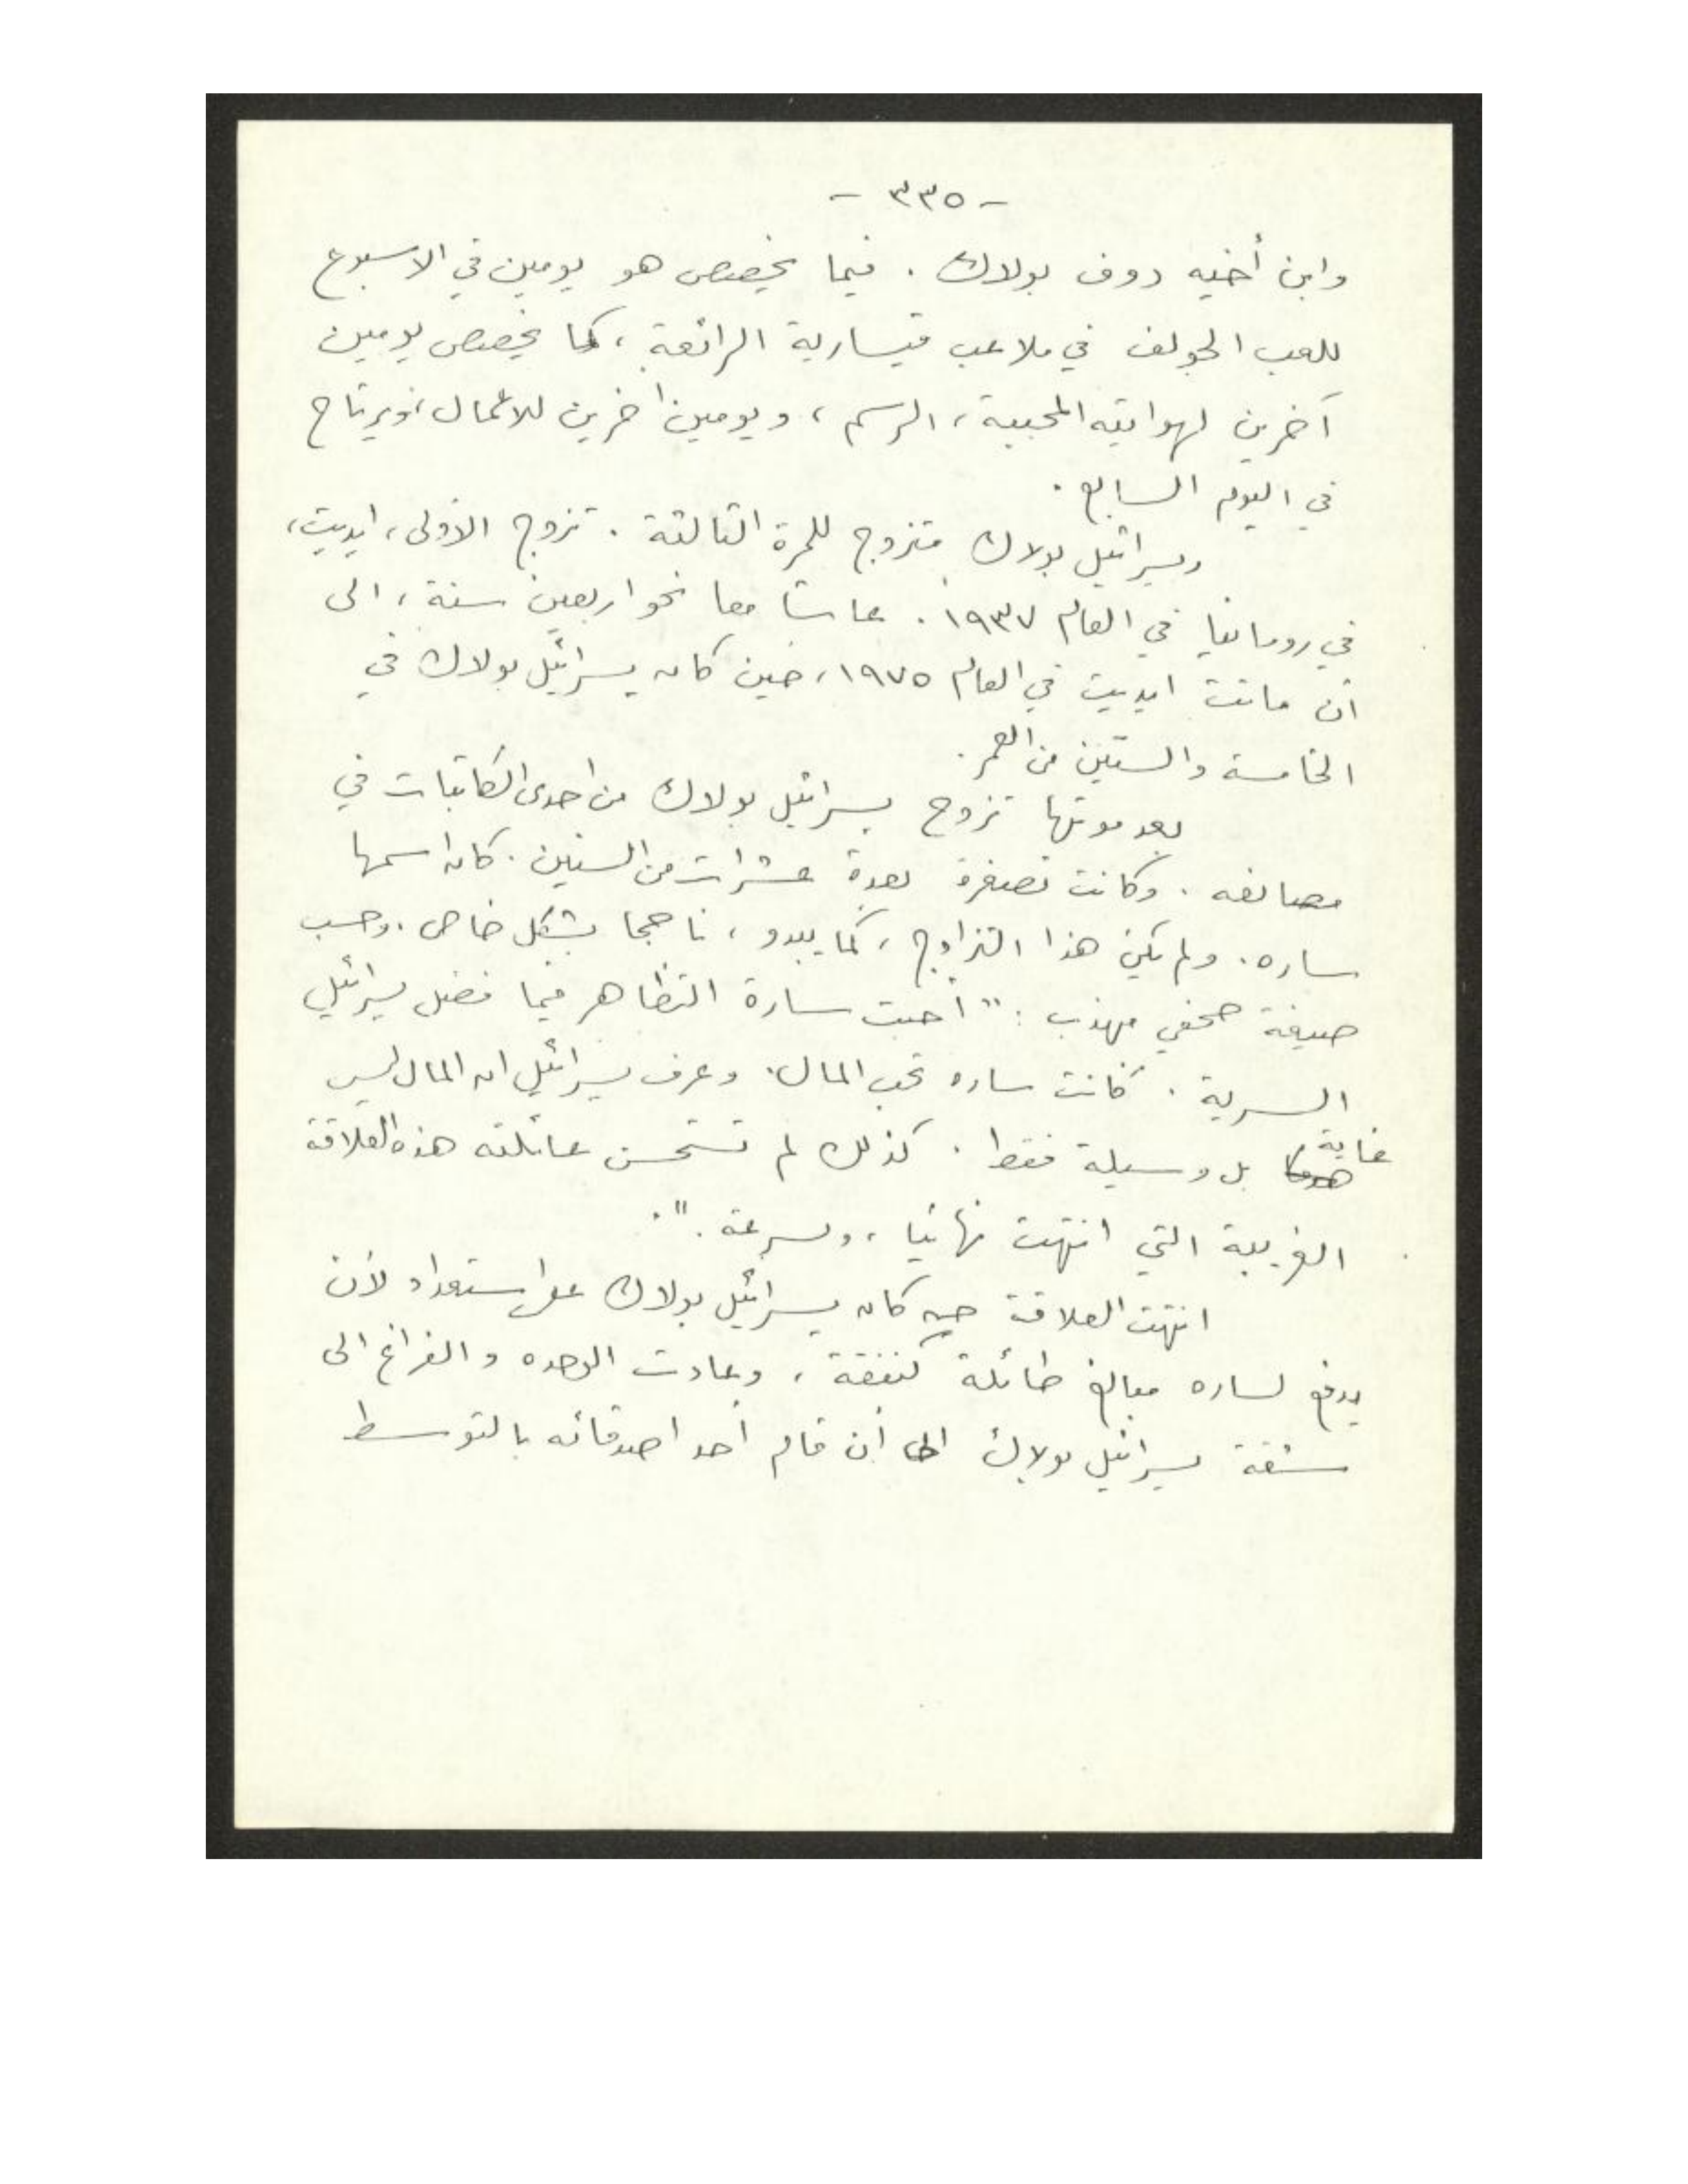 - ٣٣٥ -
وابن أخيه دوف بولاك . فيما يخصص هو يومين في الاسبوع
للعب الجولف في ملاعب قيسارية الرائعة ، كما يخصص يومين
آخرين لهوايته المحببة ، الرسم ، ويومين اخرين للاعمال ، ويرتاح
في اليوم السابع .
ويسرائيل بولاك متزوج للمرة الثالثة . تزوج الأولى ، ايديت ،
في رومانيا في العام ١٩٣٧ . عاشا معا نحو اربعين سنة ، الى
أن ماتت ايديت في العام ١٩٧٥ ، حين كان يسرائيل بولاك في
الخامسة والستين من العمر .
بعد موتها تزوج يسرائيل بولاك من احدى الكاتبات في
مصانعه . وكانت تصغره بعدة عشرات من السنين . كان اسمها
ساره . ولم يكن هذا التزاوج ، كما يبدو ، ناجحا بشكل خاص . وحسب
صيغة صحفي مهذب : " أحبت سارة التظاهر فيما فضل يسرائيل
السرية . كانت ساره تحب المال . وعرف يسرائيل ان المال ليس
غاية بل وسيلة فقط . كذلك لم تستحسن عائلته هذه العلاقة
الغريبة التي انتهت نهائيا ، وبسرعة . " .
انتهت العلاقة حين كان يسرائيل بولاك على استعداد لأن
يدفع لساره مبالغ طائلة كنفقة ، وعادت الوحده والفراغ الى
شقة يسرائيل بولاك الى أن قام أحد اصدقائه بالتوسط